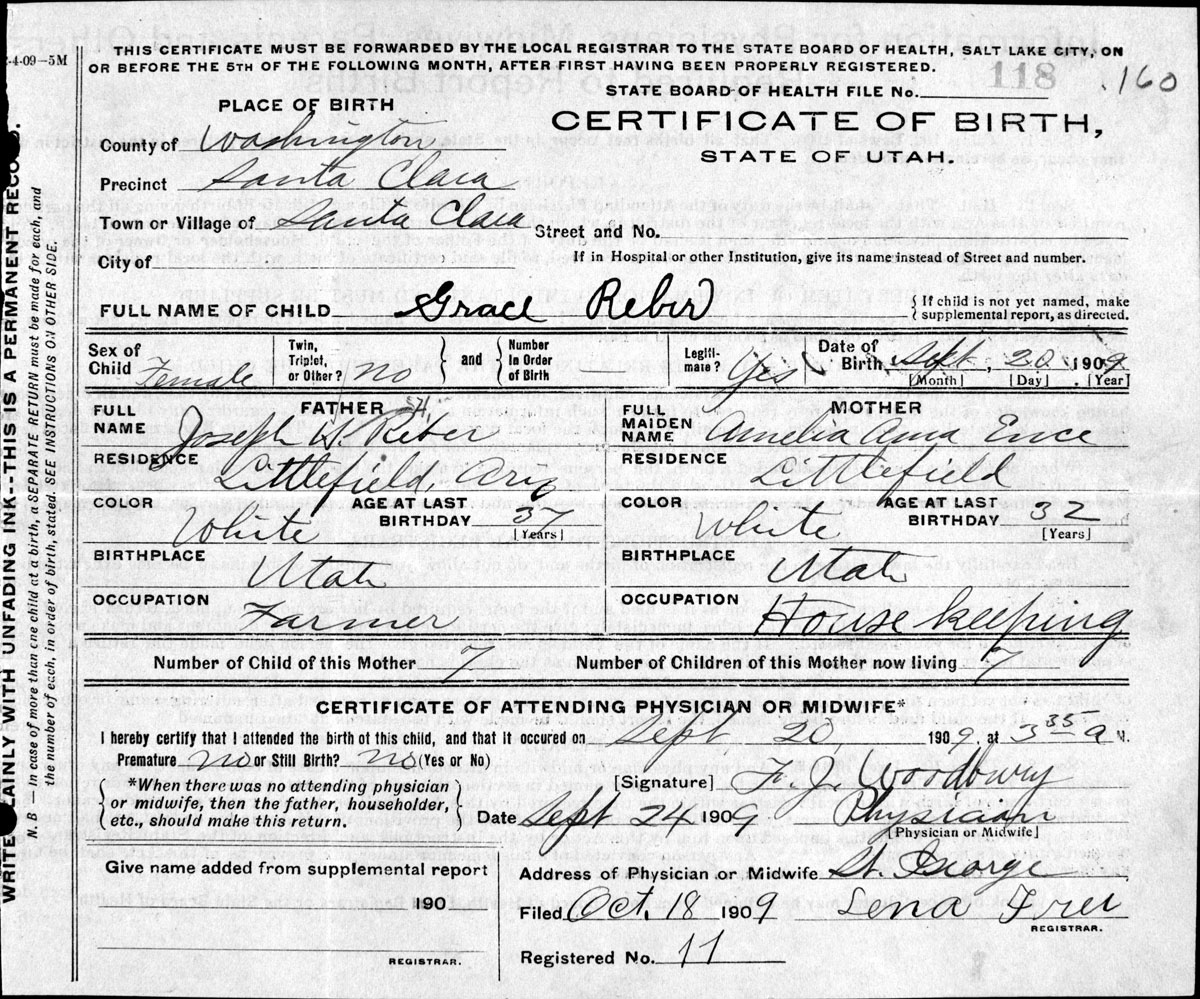 THIS CERTIFICATE MUST BE FORWARDED BY THE LOCAL REGISTRAR TO THE STATE BOARD OF HEALTH, SALT LAKE CITY, ON
OR BEFORE THE 5TH OF THE FOLLOWING MONTH, AFTER FIRST HAVING BEEN PROPERLY REGISTERED.
-4-09-5M
118
160
STATE BOARD OF HEALTH FILE No.
PLACE OF BIRTH
CERTIFICATE OF BIRTH,
STATE OF UTAH.
County of Washington
Precinct Santa Clara
Town or Village of Santa Clara Street and No.
City of If in Hospital or other Institution, give its name instead of Street and number.
FULL NAME OF CHILD Grace Reber { If child is not yet named, make
supplemental report, as directed.
Sex of Child Female Twin, Triplet, or Other? no } and { Number in Order of Birth Legiti-mate? Yes Date of Birth Sept, 20 1909
[Month] [Day] [Year]
FATHER MOTHER
FULL NAME Joseph H. Reber FULL MAIDEN NAME Amelia Ence
RESIDENCE Littlefield, Ariz RESIDENCE Littlefield
COLOR White AGE AT LAST BIRTHDAY 37 [Years] COLOR White AGE AT LAST BIRTHDAY 32 [Years]
BIRTHPLACE Utah BIRTHPLACE Utah
OCCUPATION Farmer OCCUPATION House keeping
Number of Child of this Mother 7 Number of Children of this Mother now living 7
CERTIFICATE OF ATTENDING PHYSICIAN OR MIDWIFE*
I hereby certify that I attended the birth of this child, and that it occured on Sept 20, 1909, at 3 35 a M.
Premature no or Still Birth? no (Yes or No)
*When there was no attending physician
or midwife, then the father, householder,
etc., should make this return.
[Signature] F. J. Woodbury
Date Sept 24 1909 Physician
[Physician or Midwife]
Give name added from supplemental report
190
REGISTRAR.
Address of Physician or Midwife St. George
Filed Oct. 18 1909 Lena Frei
REGISTRAR.
Registered No. 11
WRITE PLAINLY WITH UNFADING INK--THIS IS A PERMANENT RECORD.
N. B — In case of more than one child at a birth, a SEPARATE RETURN must be made for each, and
the number of each, in order of birth, stated. SEE INSTRUCTIONS ON OTHER SIDE.